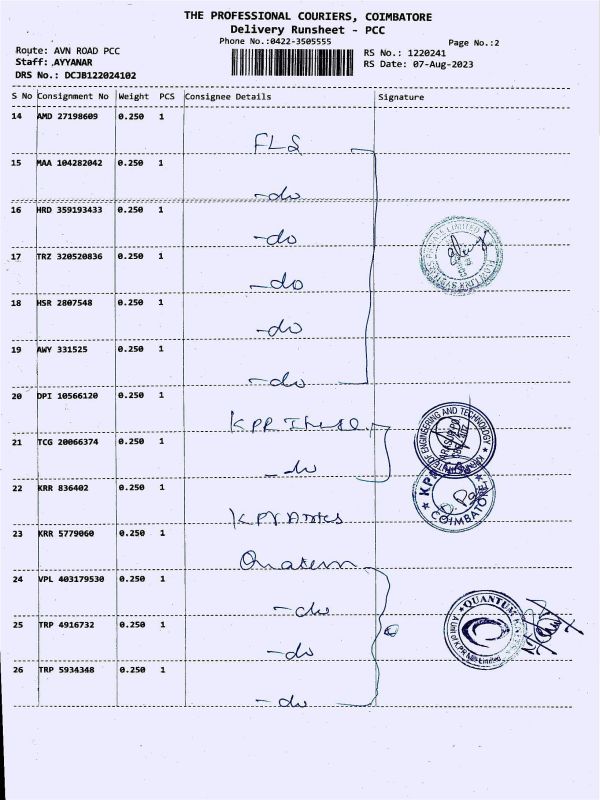 THE PROFESSIONAL COURIERS, COIMBATORE
Delivery Runsheet - PCC
Phone No.:0422-3505555
Page No.:2
Route: AVN ROAD PCC
RS No.: 1220241
Staff: AYYANAR
RS Date: 07-Aug-2023
DRS No.: DCJB122024102
S No Consignment No Weight PCS Consignee Details Signature
14 AMD 27198609 0.250 1
FLS
15 MAA 104282042 0.250 1
-do
16 HRD 359193433 0.250 1
-do
17 TRZ 320520836 0.250 1
-do
18 HSR 2807548 0.250 1
-do
19 AWY 331525 0.250 1
-do
20 DPI 10566120 0.250 1
KPR
21 TCG 20066374 0.250 1
-do
22 KRR 836402 0.250 1
KPR
23 KRR 5779060 0.250 1
24 VPL 403179530 0.250 1
-do
25 TRP 4916732 0.250 1
-do
26 TRP 5934348 0.250 1
-do
PRIVATE LIMITED
OF ENGINEERING AND TECHNOLOGY
KPR
COIMBATORE
QUANTUM
A Unit of KPR Mill Limited